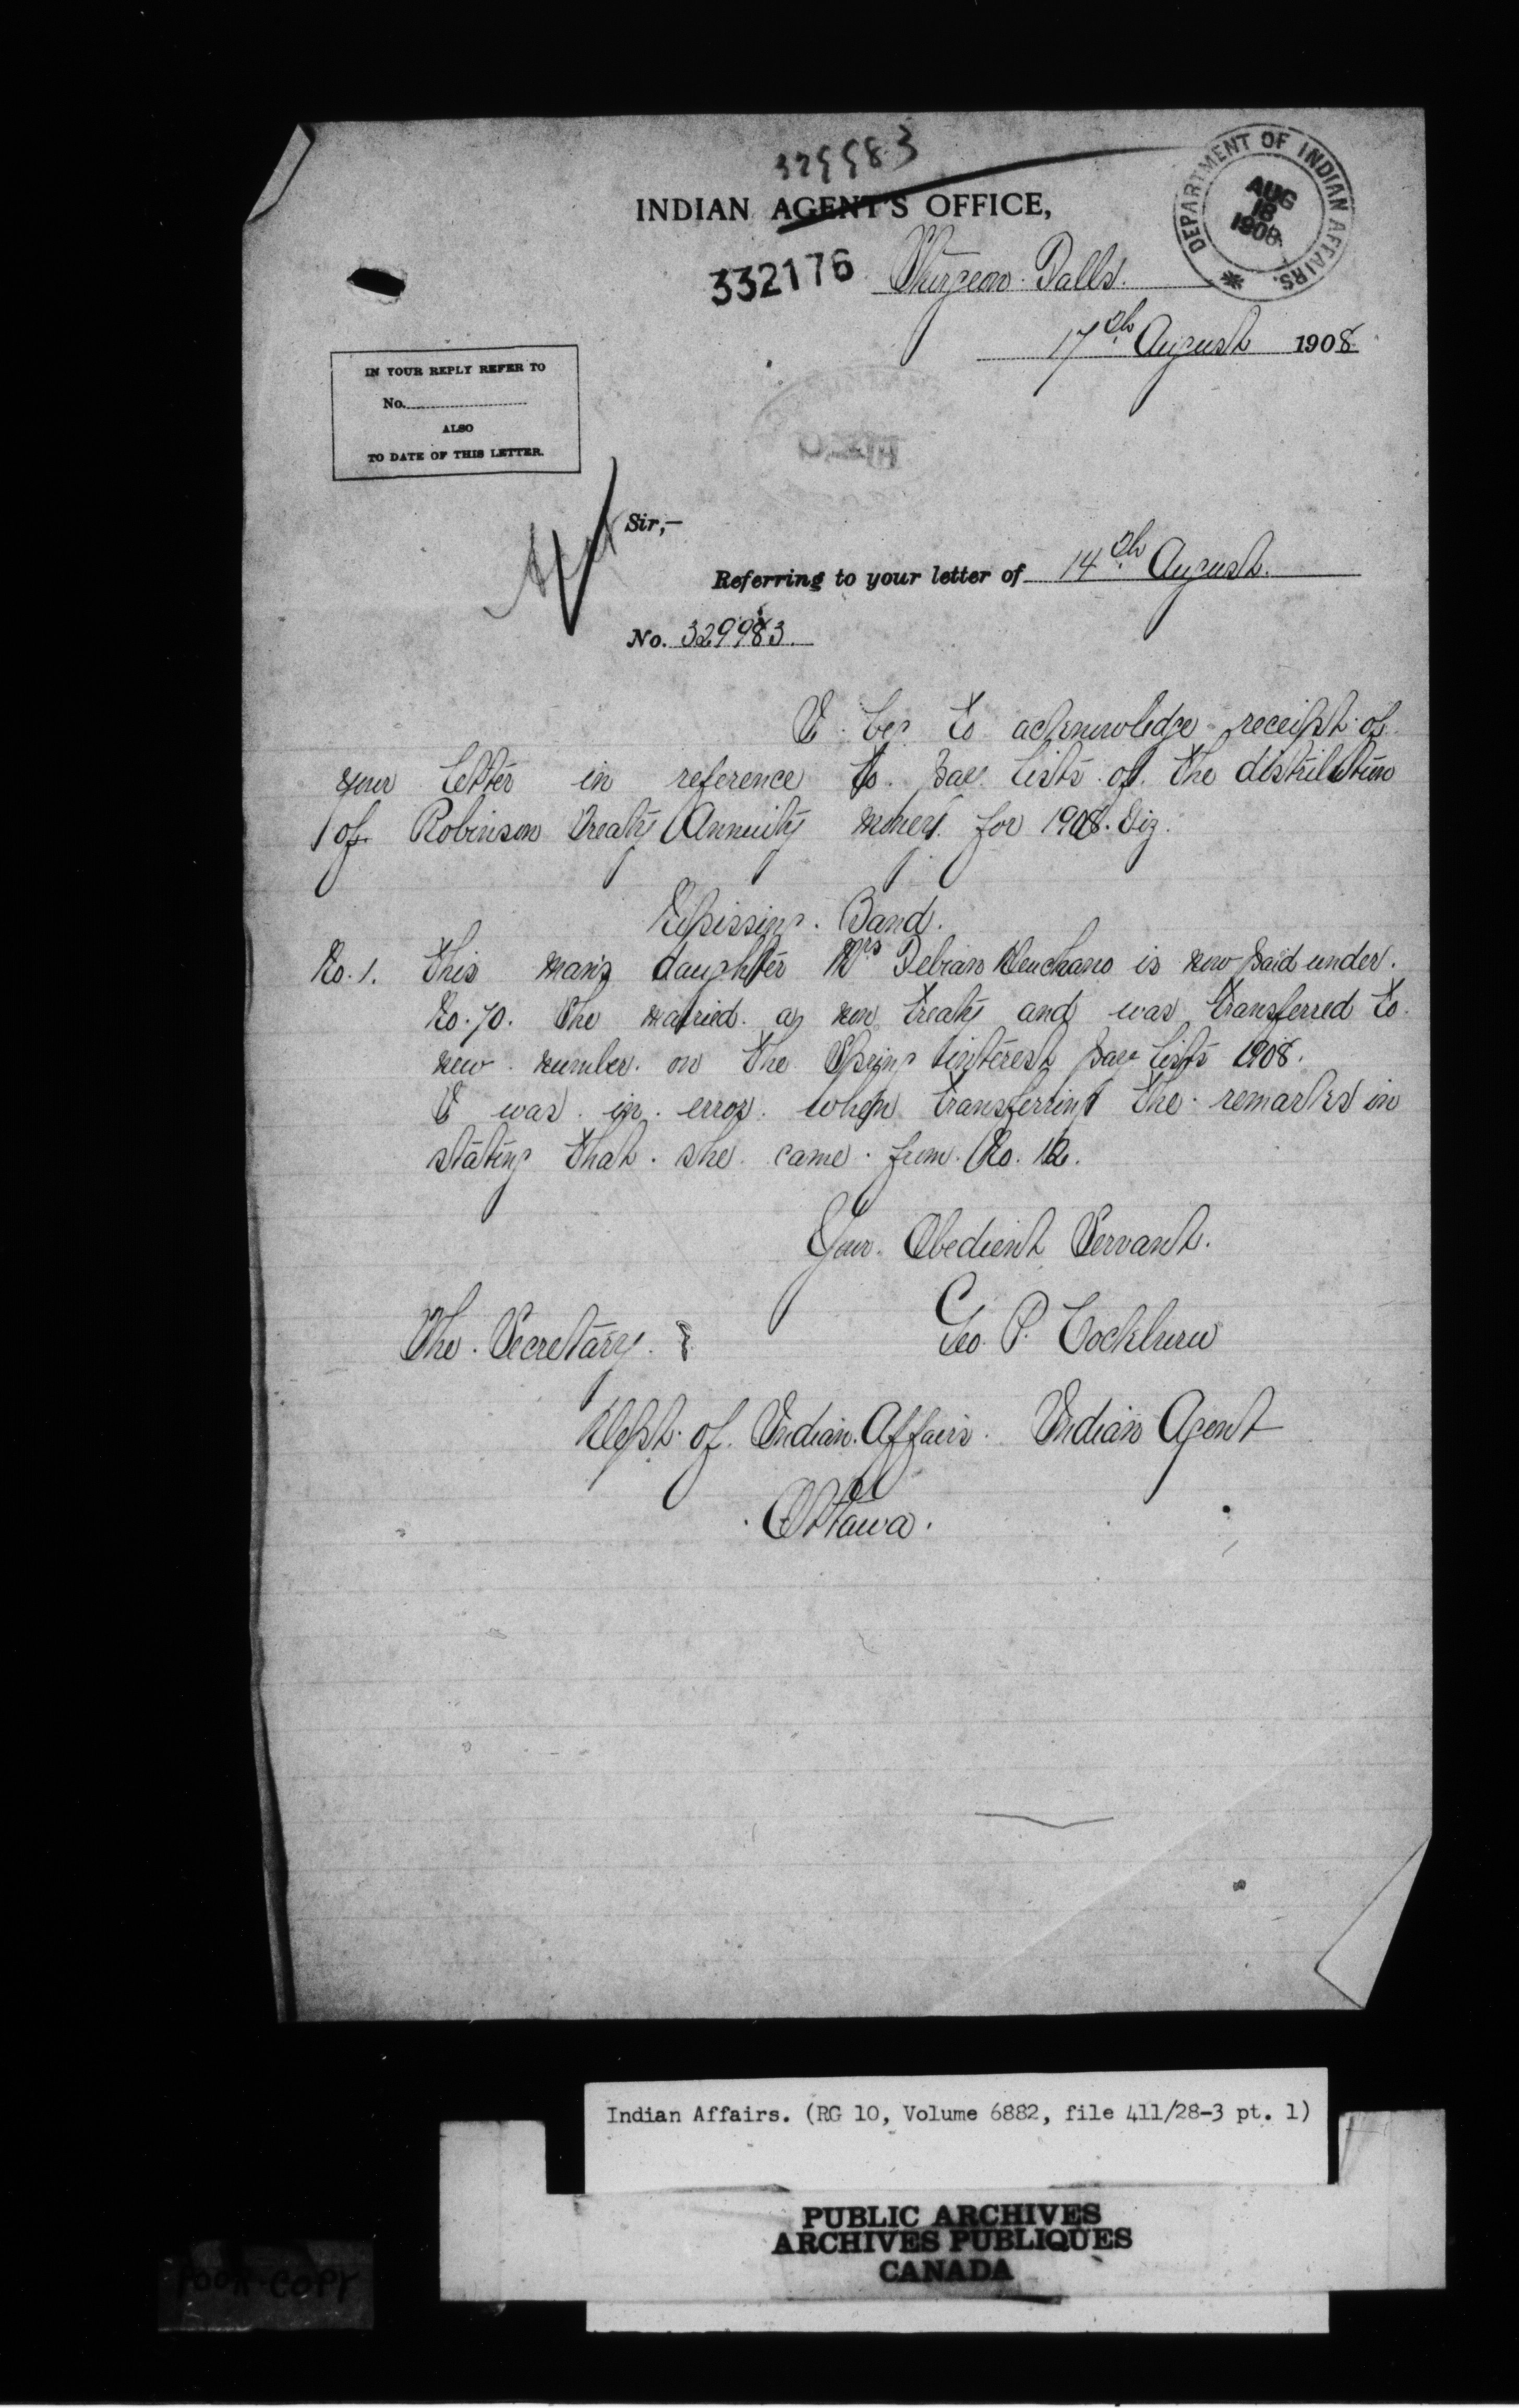 329983
INDIAN AGENT'S OFFICE,
DEPARTMENT OF INDIAN AFFAIRS.
AUG
18
1908
332176
Sturgeon Falls.
17th August 1908
IN YOUR REPLY REFER TO
No.
ALSO
TO DATE OF THIS LETTER.
Sir,—
Referring to your letter of 14th August.
No. 329983.
I beg to acknowledge receipt of
your letter in reference to Pay Lists of the distribution
of Robinson Treaty Annuity money for 1908. Viz.
Nipissing Band.
No. 1. This man's daughter Mrs Debian is now paid under
No. 70. She married a non treaty and was transferred to
new number on the Spring interest pay lists 1908.
I was in error when transferring the remarks in
stating that she came from No. 12.
Your Obedient Servant.
Geo. P. Cockburn
Indian Agent
The Secretary.
Dept. of Indian Affairs.
Ottawa.
Indian Affairs. (RG 10, Volume 6882, file 411/28-3 pt. 1)
PUBLIC ARCHIVES
ARCHIVES PUBLIQUES
CANADA
POOR COPY